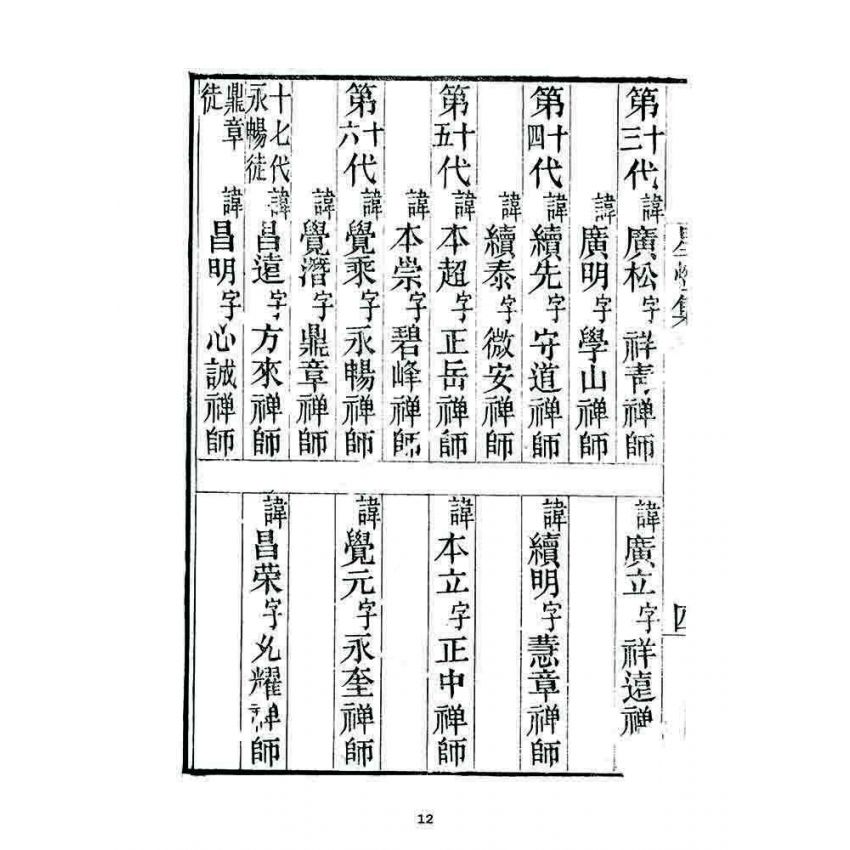 第十三代諱廣松字祥青禅師
諱廣明字學山禅師
第十四代諱續先字守道禅師
諱續泰字微安禅師
第十五代諱本超字正岳禅師
諱本崇字碧峰禅師
第十六代諱覺乘字永暢禅師
諱覺潛字鼎章禅師
十七代永暢徒諱昌遠字方來禅師
鼎章徒諱昌明字心誠禅師
諱廣立字祥遠禅
諱續明字慧章禅師
諱本立字正中禅師
諱覺元字永奎禅師
諱昌荣字耀禅師
集
四
12